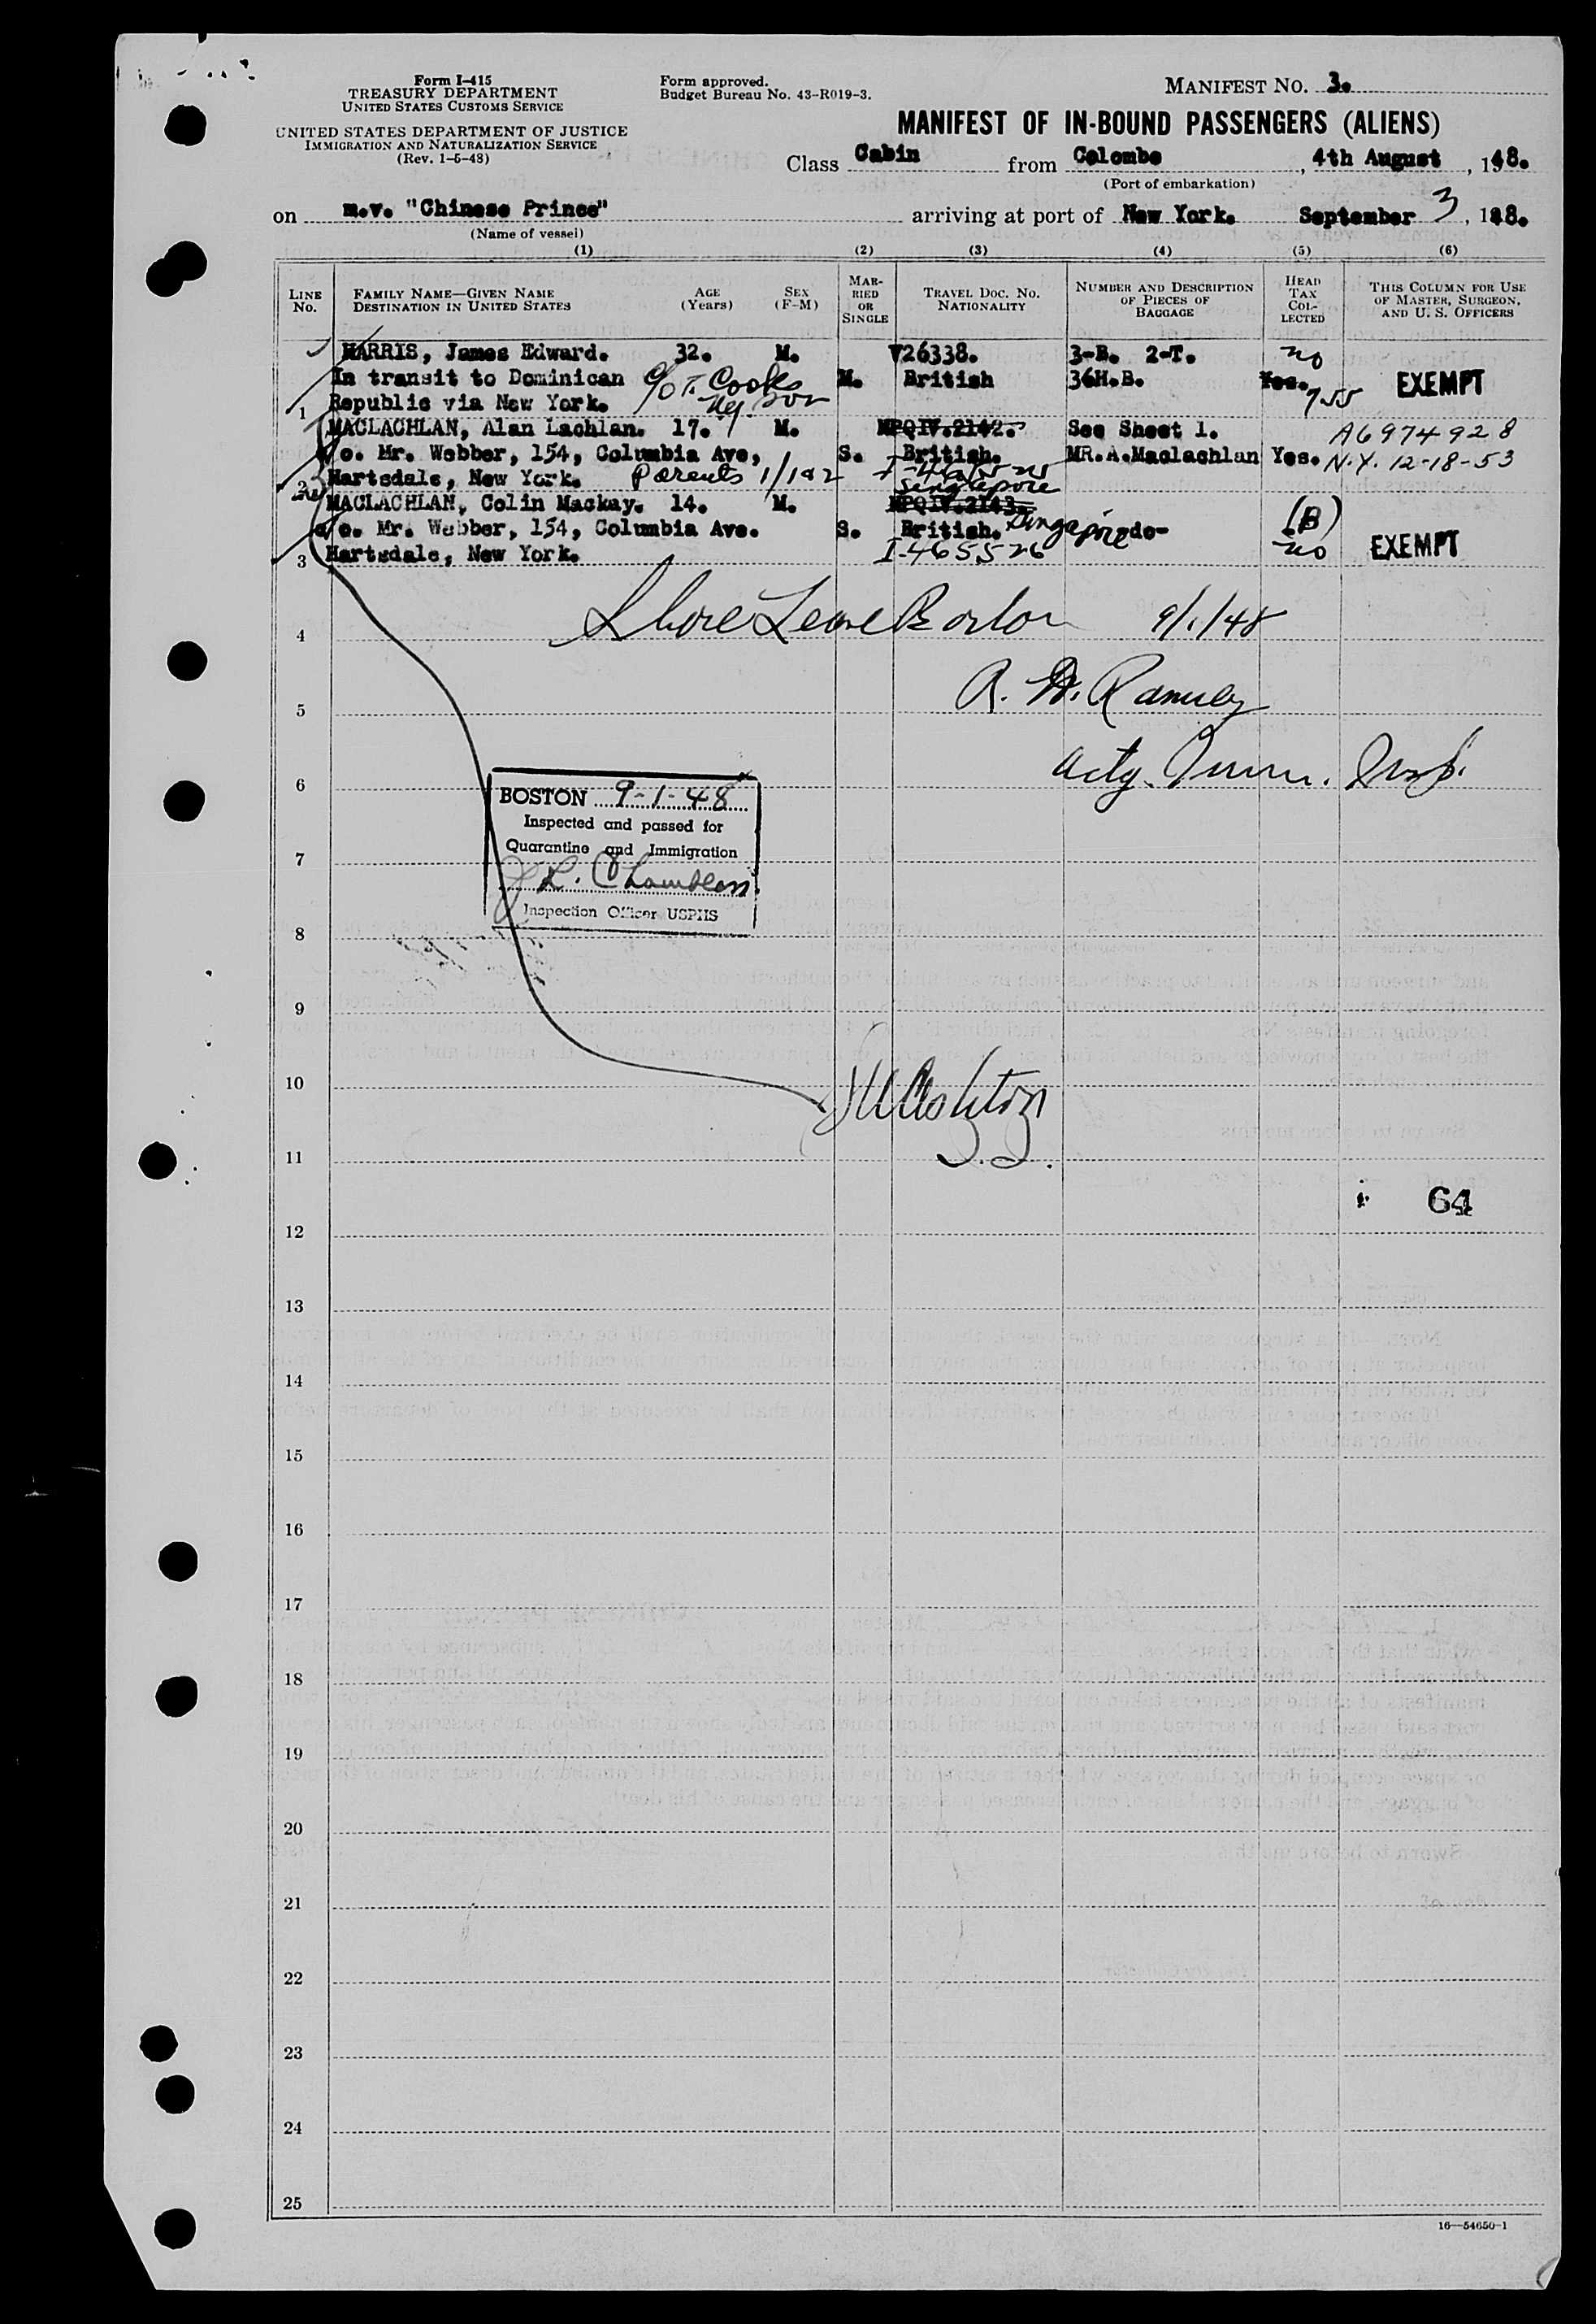 Form I-415
TREASURY DEPARTMENT
UNITED STATES CUSTOMS SERVICE
UNITED STATES DEPARTMENT OF JUSTICE
IMMIGRATION AND NATURALIZATION SERVICE
(Rev. 1-6-48)
Form approved.
Budget Bureau No. 43-R019-3.
MANIFEST NO. 3.
MANIFEST OF IN-BOUND PASSENGERS (ALIENS)
Class Cabin from Colombo, 4th August, 148.
(Port of embarkation)
on m.v. "Chinese Prince" arriving at port of New York. September 3, 148.
(Name of vessel)
(1) (2) (3) (4) (5) (6)
LINE No.
FAMILY NAME—GIVEN NAME
DESTINATION IN UNITED STATES
AGE (Years)
SEX (F-M)
MARRIED OR SINGLE
TRAVEL DOC. NO. NATIONALITY
NUMBER AND DESCRIPTION OF PIECES OF BAGGAGE
HEAD TAX COLLECTED
THIS COLUMN FOR USE OF MASTER, SURGEON, AND U. S. OFFICERS
HARRIS, James Edward. 32. M. V26338. 3-B. 2-T. no
In transit to Dominican c/o T. Cooks M. British 36H.B. Yes. EXEMPT
1 Republic via New York.
MACLACHLAN, Alan Lachlan. 17. M. MPQIV.2142. See Sheet 1. A6974928
c/o. Mr. Webber, 154, Columbia Ave, S. British. MR.A.Maclachlan Yes. N.Y. 12-18-53
2 Hartsdale, New York. Parents Singapore
MACLACHLAN, Colin Mackay. 14. M. MPQIV.2143.
c/o. Mr. Webber, 154, Columbia Ave. S. British. Singapore -do- (B)
3 Hartsdale, New York. I-465526 no EXEMPT
4 Shore Leave Boston 9/1/48
5 A. W.
6 Actg. Imm. Insp.
BOSTON 9-1-48
Inspected and passed for
Quarantine and Immigration
7
J L.
Inspection Officer USPHS
8
9
10
11
64
12
13
14
15
16
17
18
19
20
21
22
23
24
25
16—54650-1